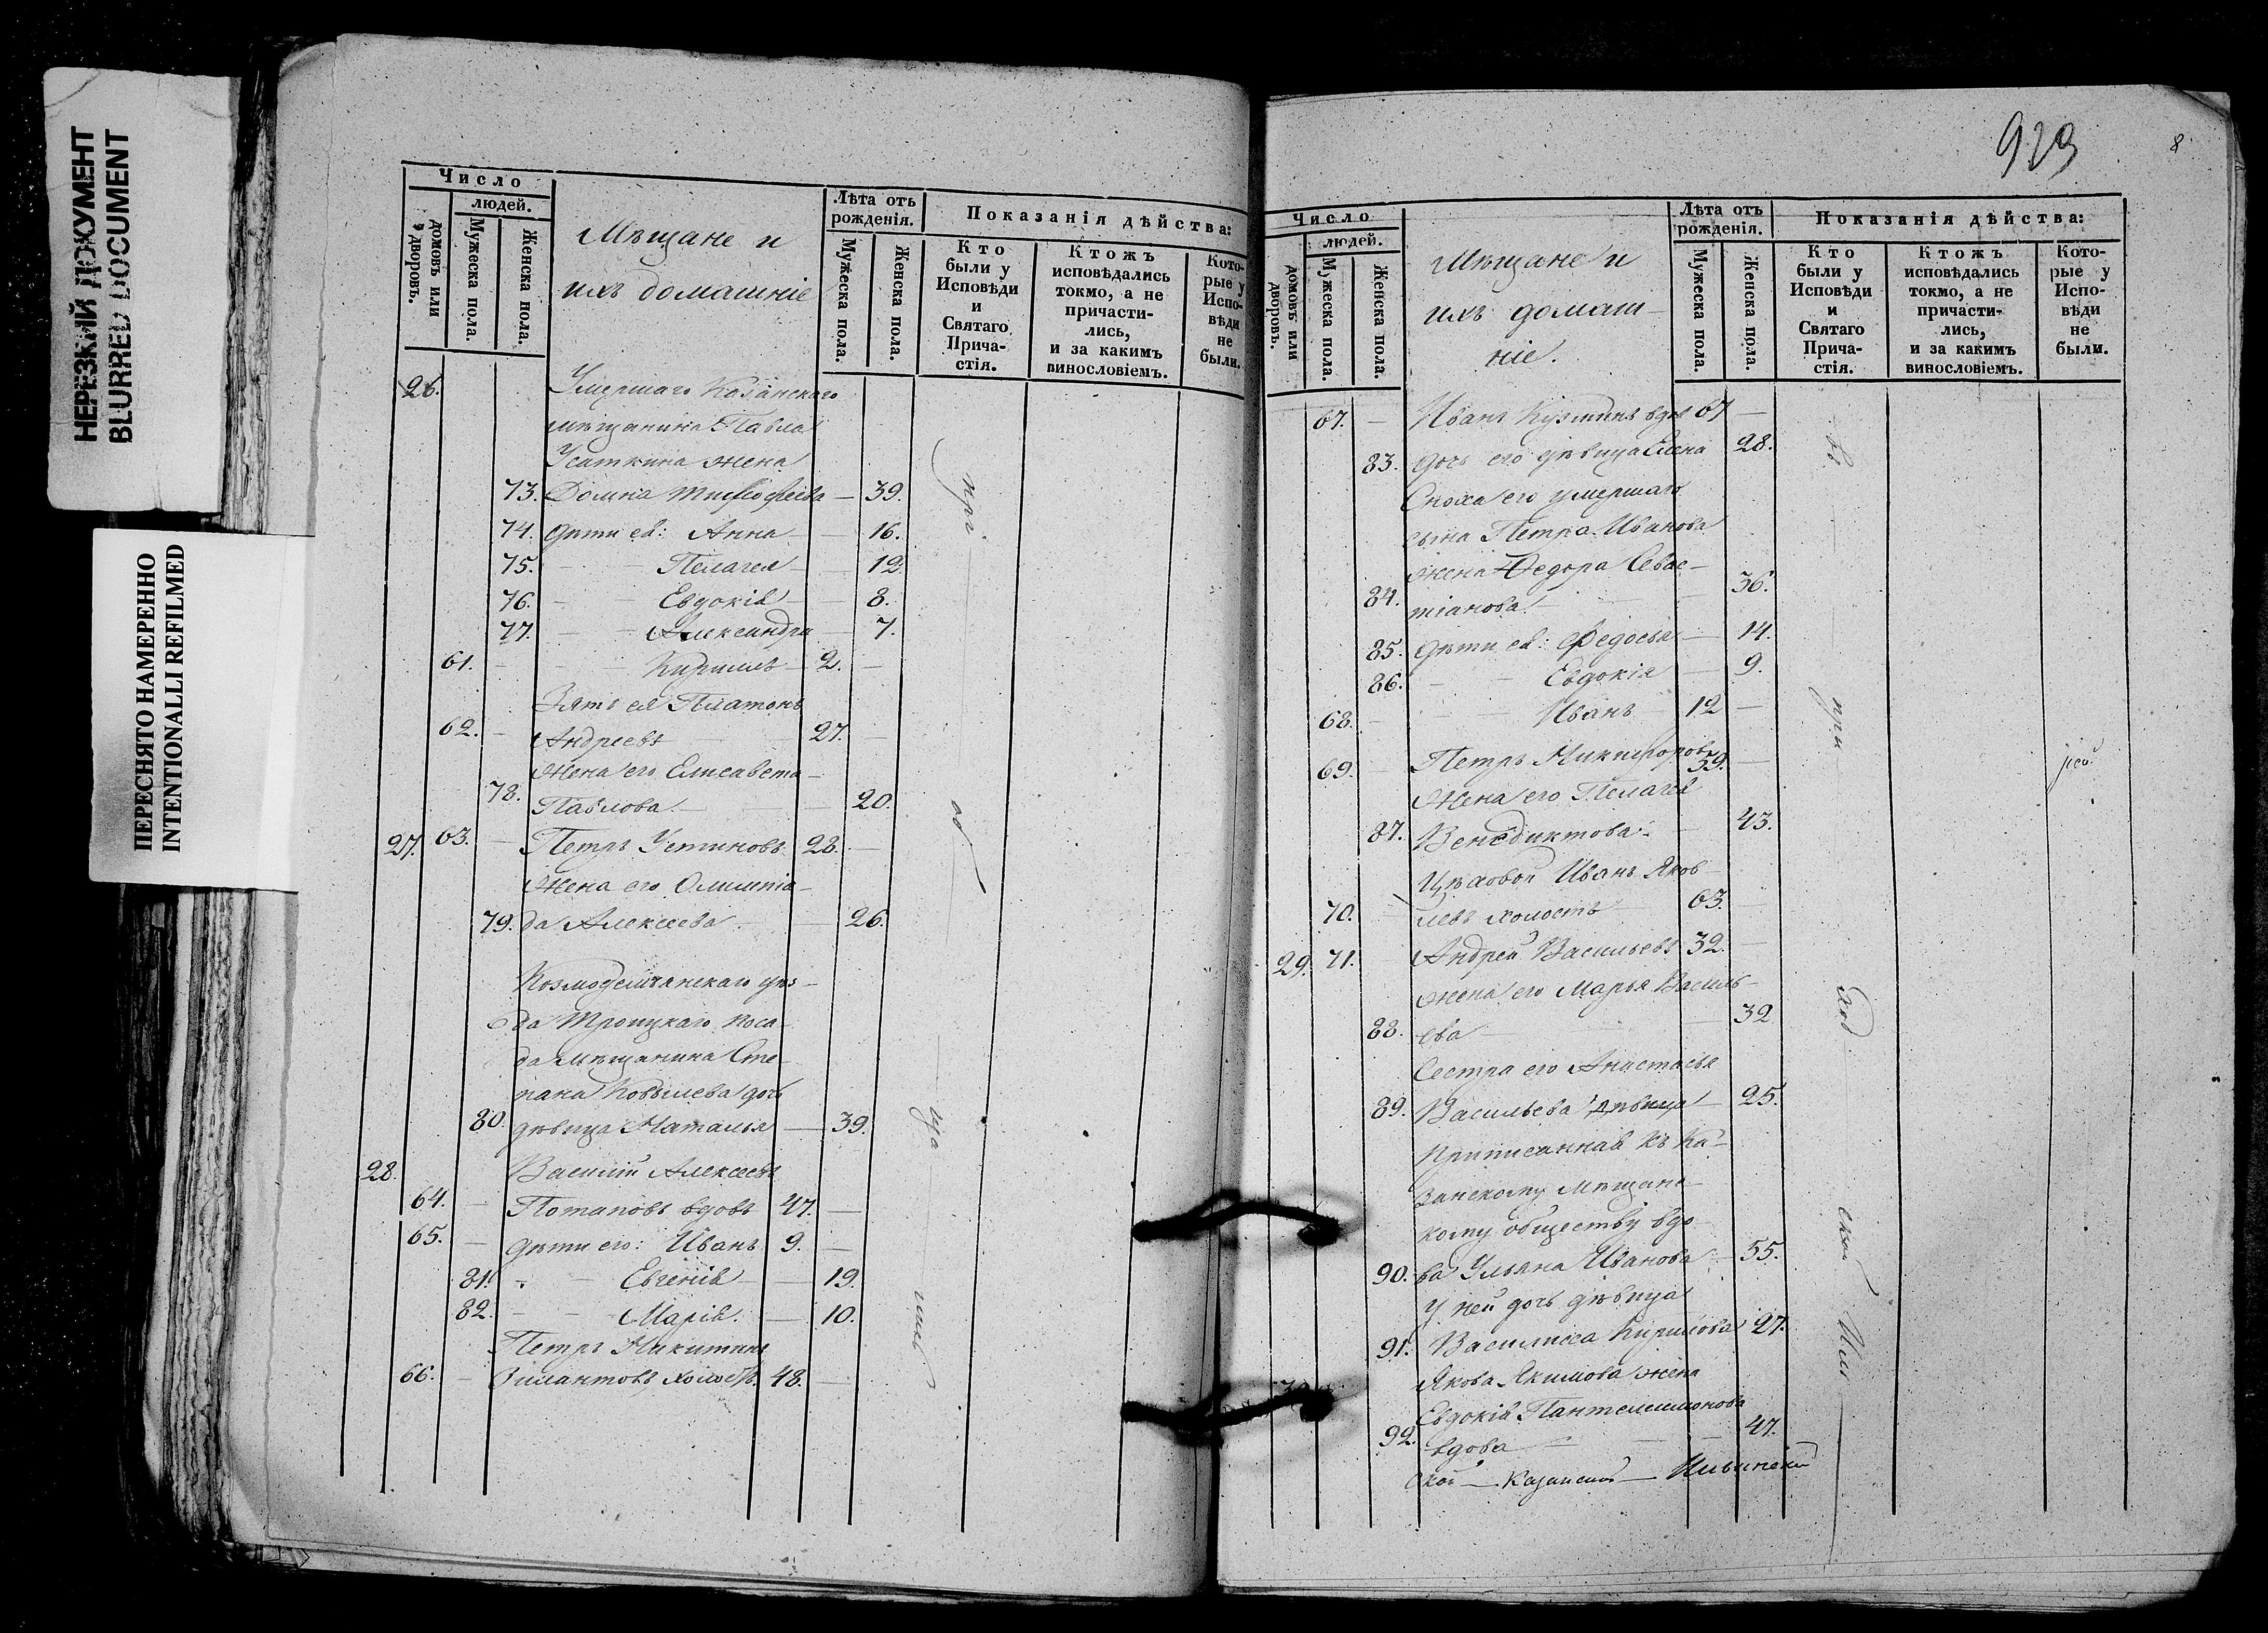 НЕРЕЗКИЙ ДОКУМЕНТ
BLURRED DOCUMENT
ПЕРЕСНЯТО НАМЕРЕННО
INTENTIONALLI REFILMED
Число
людей.
домовъ или дворовъ.
Мужеска пола.
Женска пола.
Мѣщане и
ихъ домашніе
Лѣта отъ
рожденія.
Мужеска пола.
Женска пола.
Показанія дѣйства:
Кто
были у
Исповѣди
и
Святаго
Прича-
стія.
Ктожъ
исповѣдались
токмо, а не
причасти-
лись,
и за какимъ
винословіемъ.
Кото-
рые у
Испо-
вѣди
не
были.
26. Умершаго Казанскаго
мѣщанина Павла
Усаткина жена
73. Домна Тимофеева — 39.
74. дѣти ея: Анна — 16.
75. — — Пелагея — 12.
76. — — Евдокія — 8.
77. — — Александра — 7.
61. — — Кириллъ — 2. —
Зять ея Платонъ
62. — Андреевъ — 27. —
Жена его Елисавета
78. Павлова — 20.
27. 63. — Петръ Устиновъ 28. —
Жена его Олимпіа-
79. да Алексеева — 26.
Козмодемьянскаго уѣз-
да Троицкаго поса-
да мѣщанина Сте-
пана Ковылева дочь
80. дѣвица Наталья — 39.
28. Василій Алексеевъ
64. — Потаповъ вдовъ 47. —
65. — дѣти его: Иванъ 9. —
81. — Евгенія — 19.
82. — — Марія. — 10.
Петръ Никитинъ
66. — Зилантовъ холостъ. 48. —
при
хо
ца
929
8
Число
людей.
домовъ или дворовъ.
Мужеска пола.
Женска пола.
Мѣщане и
ихъ домаш-
ніе.
Лѣта отъ
рожденія.
Мужеска пола.
Женска пола.
Показанія дѣйства:
Кто
были у
Исповѣди
и
Святаго
Прича-
стія.
Ктожъ
исповѣдались
токмо, а не
причасти-
лись,
и за какимъ
винословіемъ.
Кото-
рые у
Испо-
вѣди
не
были.
67. — Иванъ Кузминъ вдов 67 —
83. дочь его дѣвица Елена 28.
Сноха его умершаго
сына Петра Иванова
жена Федора Севас-
84. тіанова — 36.
85. дѣти ея: Федосья — 14.
86. — — Евдокія — 9.
68. — — Иванъ 12 —
69. — Петръ Никифоровъ 59. —
Жена его Пелагея
87. Венедиктова — 43.
Цѣховой Иванъ Яков-
70. левъ холостъ 63. —
29. 71. Андрей Васильевъ 32. —
жена его Марья Василь-
88. ева — 32
Сестра его Анастасья
89. Васильева дѣвица — 25.
Приписанная къ Ка-
занскому мѣщанс-
кому обществу вдо-
90. ва Ульяна Иванова — 55.
У ней дочь дѣвица
91. Василиса Кирилова 27.
Якова Якимова жена
Евдокія Пантелеимонова
92. вдова — 47.
ской — Казанской — Ильинской
при
ской